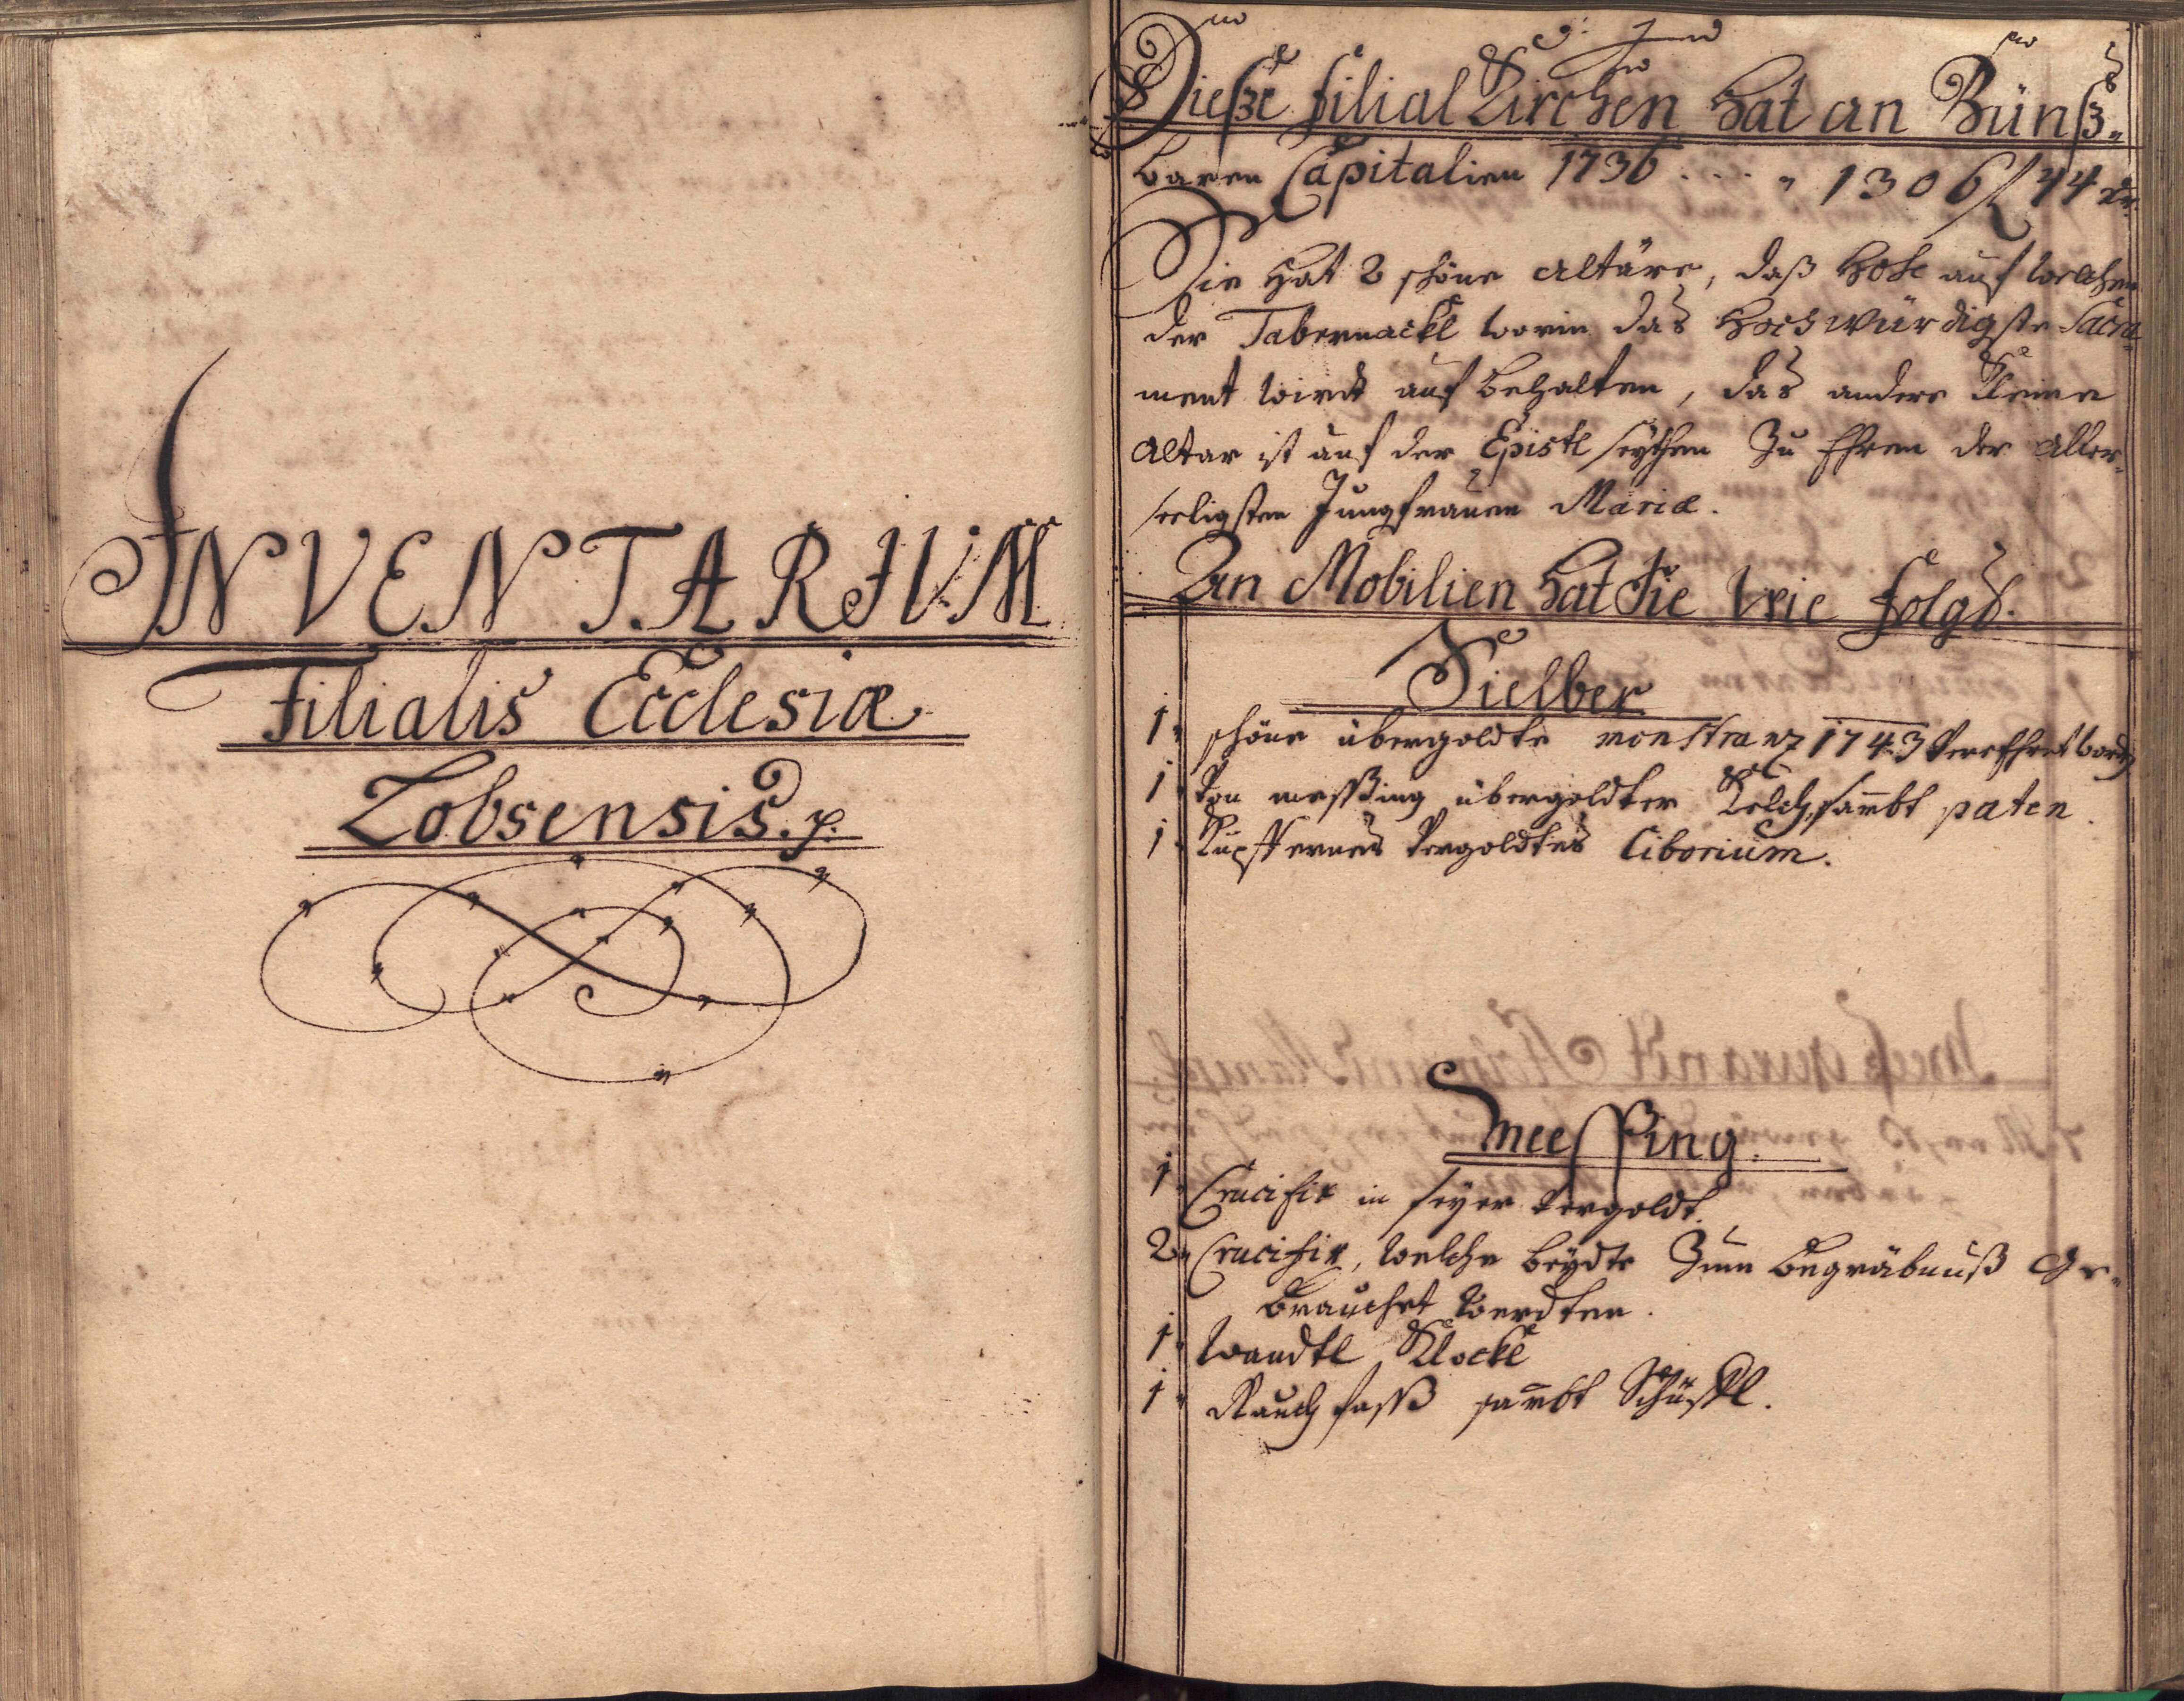 INVENTARIUM
Filialis Ecclesiæ
Lobsensis. p.
Dieße filial Kirchen hat an Zünß-
baren Capitalien 1736 . . . . 1306 f 44 xr.
Sie hat 2 schöne Altäre, daß hohe auf welchen
der Tabernackl worin das Hochwürdigste Sacra-
ment wirdt auf behalten, das andere kleine
Altar ist auf der Epistl seythen Zu Ehren der Aller-
seeligsten Jungfrauen Mariæ.
An Mobilien hat Sie wie folgd.
Sielber
1. schöne übergoldte monstranz 1743 verehret word
1. von messßing übergoldter Kelch, sambt paten.
1. Kupffernes vergoldtes Ciborium.
meesßing.
1. Crucifix in feyer vergoldt.
2. Crucifix, welche beydte Zum begräbnuß Ge-
brauchet werdten.
1. wandtl Klockl
1. Rauchfasß sambt Schüffl.